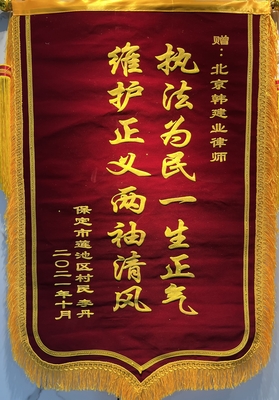 赠：北京韩建业律师
执法为民一生正气
维护正义两袖清风
保定市莲池区村民 李丹
二〇二一年十月